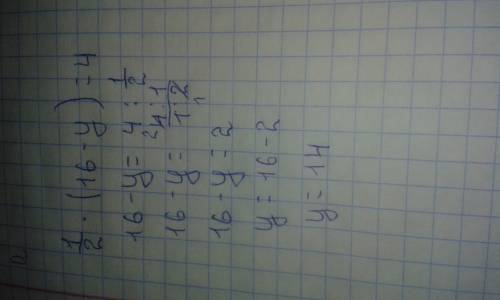 1/2 · (16 - y) = 4
16 - y = 4 : 1/2
16 - y = 4 · 1 / 1 · 2
16 - y = 2
y = 16 - 2
y = 14